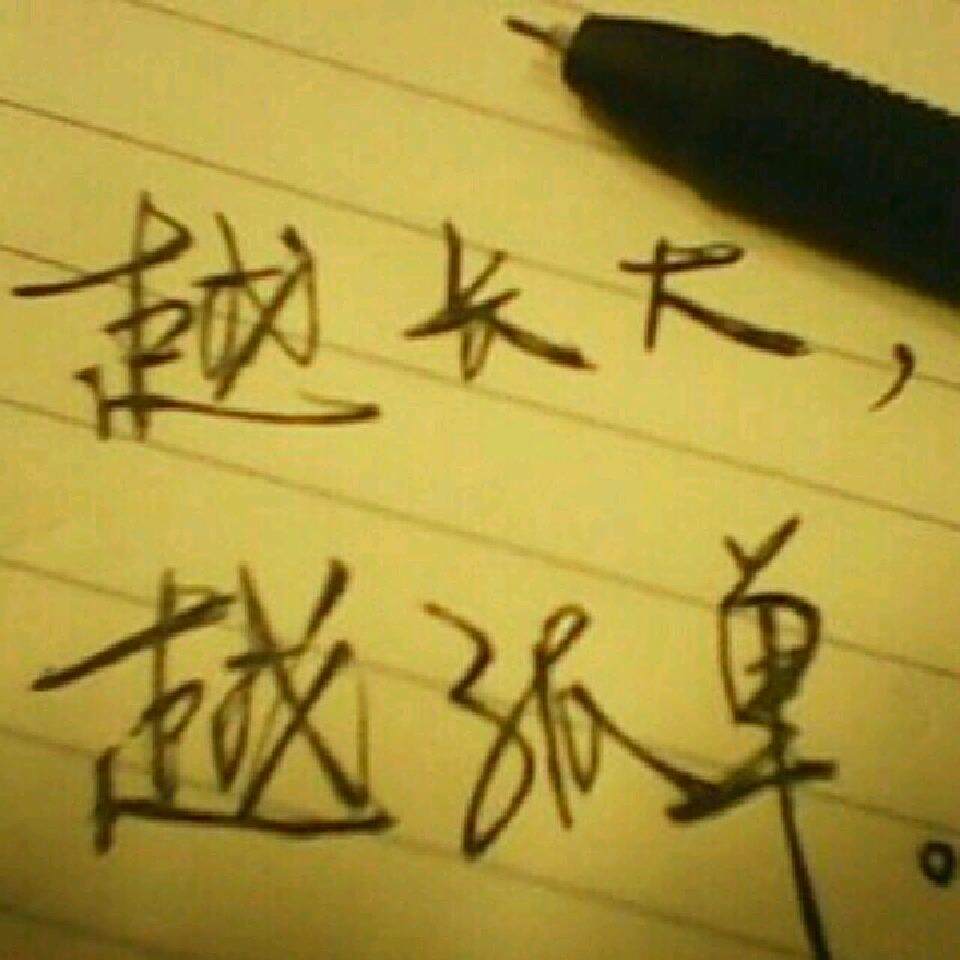 越长大,
越孤单。